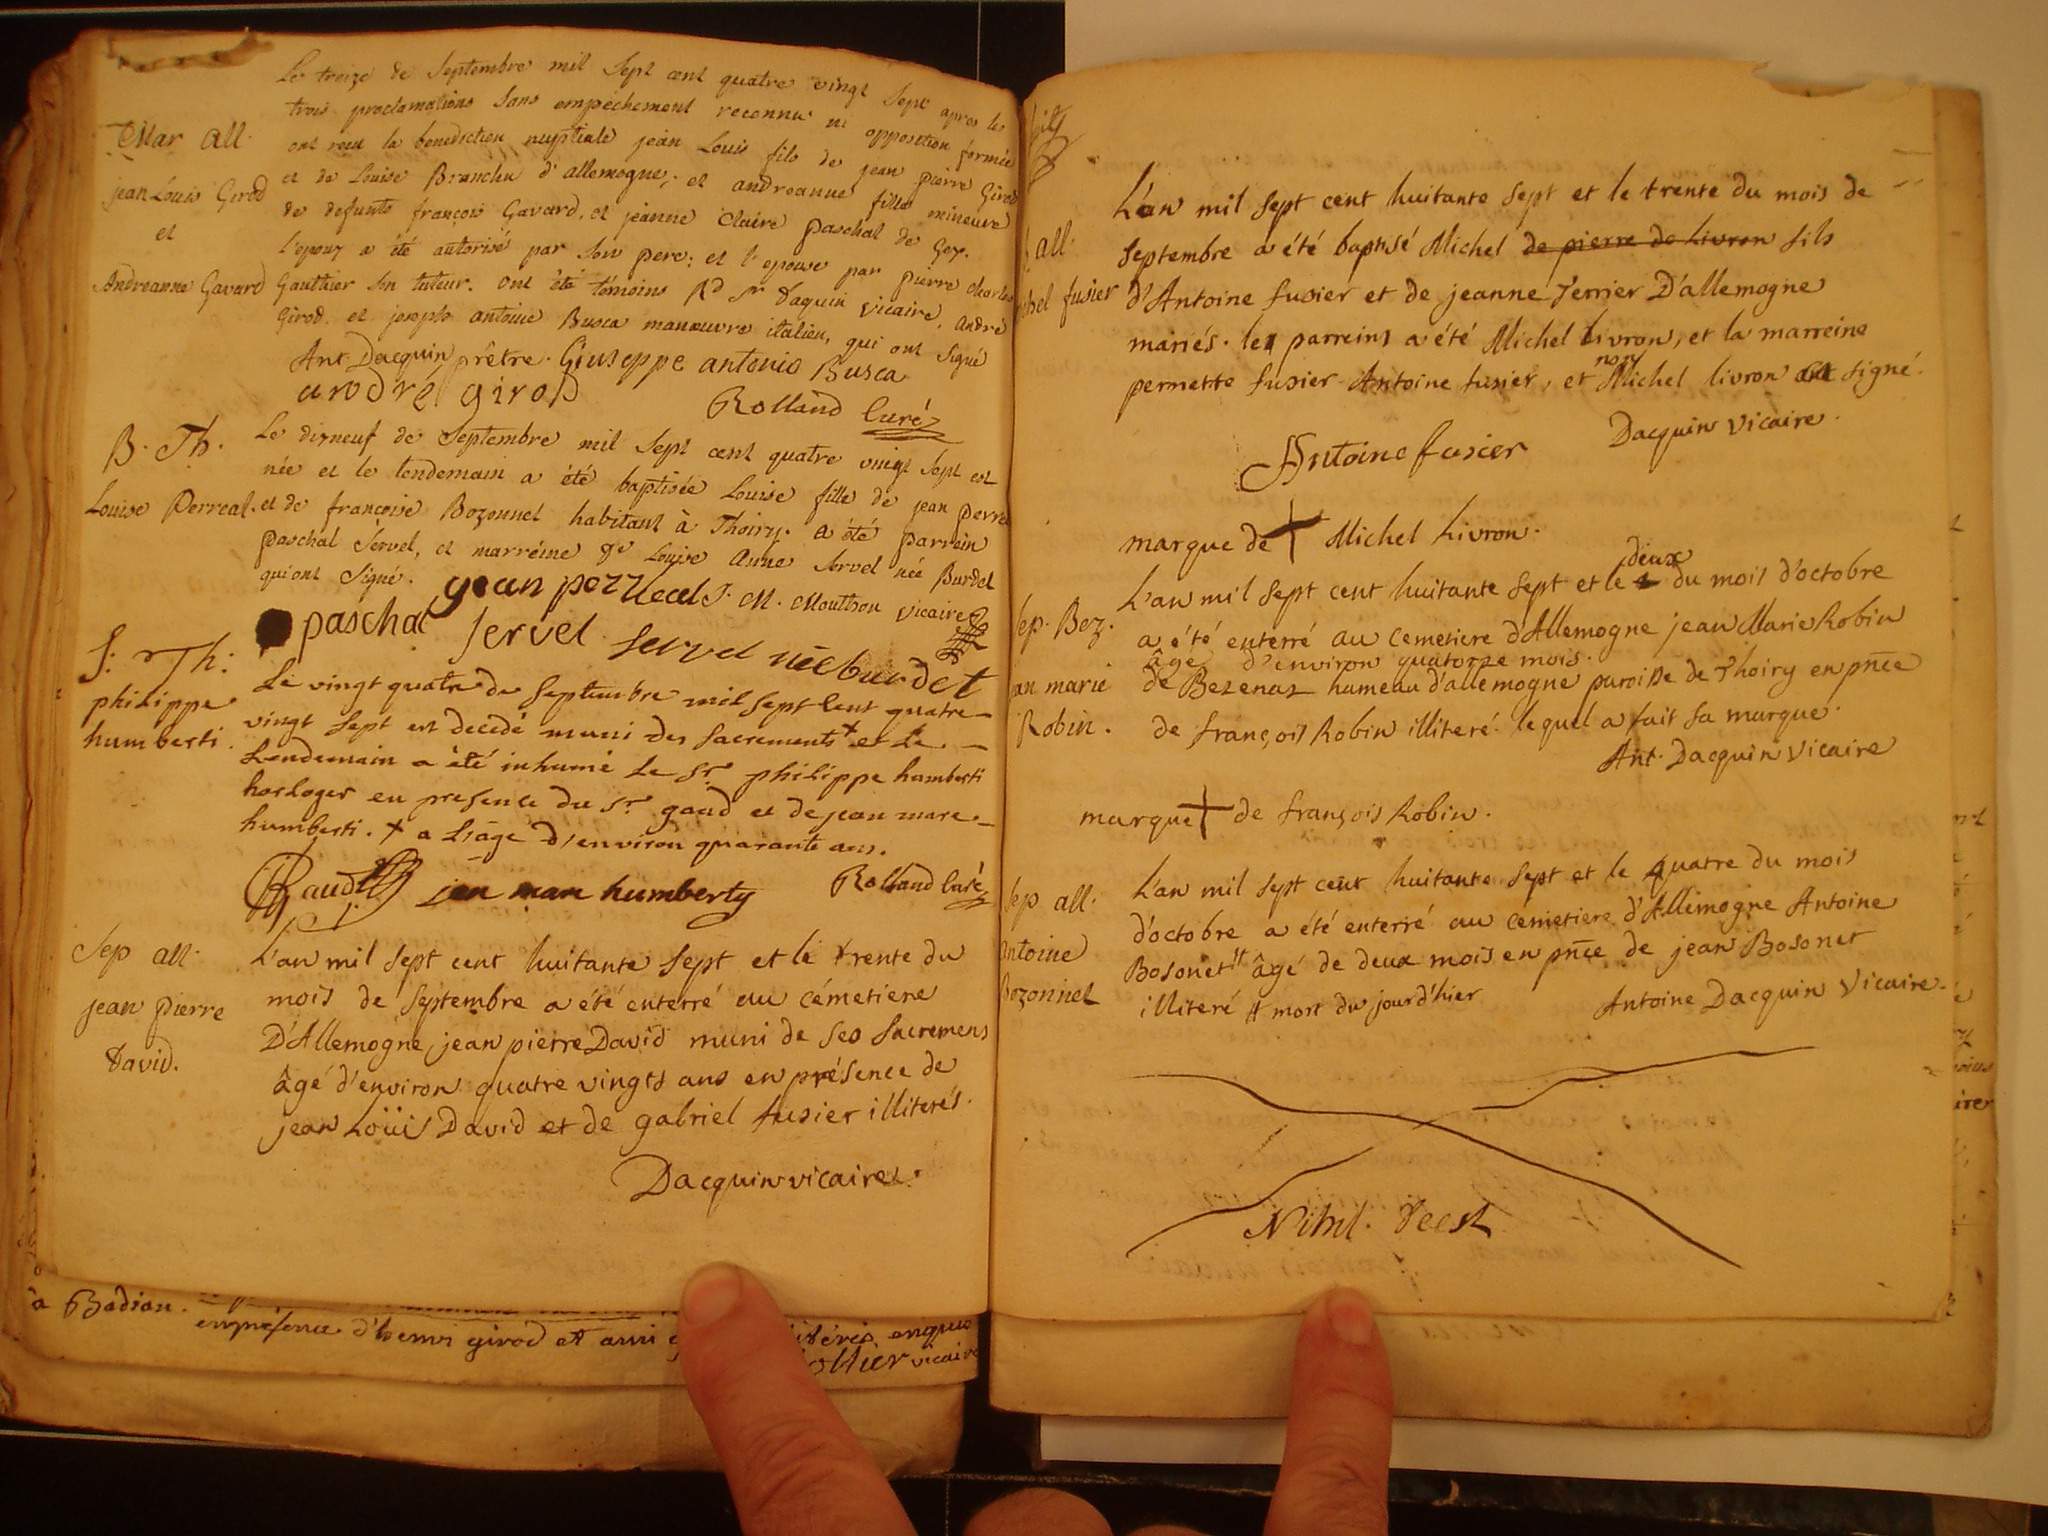 Le treize de Septembre mil Sept cent quatre vingt Sept apres les
trois proclamations Sans empéchement reconnu ni opposition formée
ont recu la benediction nuptiale jean Louis fils de jean pierre Girod
et de Louise Branchu d'allemogne; et andreanne fille mineure
de defunts françois Gavard, et jeanne Claire paschal de Gex.
l'epoux a été autorisé par son pere; et l'epouse par pierre charles
Gauthier son tuteur. ont été témoins Rd Sr Daquin vicaire, André
Girod, et joseph antoine Busca manœuvre italien, qui ont Signé
Mar all.
jean Louis Girod
et
Andreanne Gavard
Ant. Dacquin prêtre. Giuseppe antonio Busca
andré girod
Rolland Curé
B. Th.
Louise Perreal.
Le dixneuf de Septembre mil Sept cent quatre vingt Sept est
née et le lendemain a été baptisée Louise fille de jean perre
et de françoise Bozonnet habitant à Thoiry. a été parrein
paschal Servel, et marréine Louise Anne Servel née Burdet
qui ont Signé.
J. M. Mouthon vicaire
paschal Servel Servel née burdet
S: Th:
philippe
humberti.
Le vingt quatre de Septembre mil sept cent quatre
vingt sept est decedé muni des sacrements + et le
Lendemain a été inhumé le Sr philippe humberti
horloger en presence du Sr gaud et de jean marc
humberti. + a l'âge d'environ quarante ans.
Gaud jean marc humberty Rolland Curé
Sep all.
jean pierre
David.
L'an mil sept cent huitante sept et le trente du
mois de septembre a été enterré au cémetiere
D'Allemogne jean pierre David muni de ses sacremens
âgé d'environ quatre vingts ans en présence de
jean Loüis David et de gabriel fusier illiterés.
Dacquin vicaire.
à Badian.
en présence d'henri girod et
vicaire
all.
fusier
L'an mil sept cent huitante sept et le trente du mois de
septembre a été baptisé Michel de pierre de Livron fils
d'Antoine fusier et de jeanne Terrier D'allemogne
mariés. les parreins a été Michel Livron, et la marreine
pernette fusier Antoine fusier, et non Michel livron ont signé.
Dacquin Vicaire.
Antoine fusier
marque de + Michel Livron.
Sep. Bez.
jan marie
Robin.
L'an mil sept cent huitante sept et le deux du mois d'octobre
a été enterré au cemetiere d'Allemogne jean Marie Robin
âgé d'environ quatorze mois.
de Bezenaz hameau d'allemogne paroisse de Thoiry en pnce
de françois Robin illiteré lequel a fait sa marque.
Ant. Dacquin Vicaire
marque + de françois Robin.
Sep all.
Antoine
Bozonnet
L'an mil sept cent huitante sept et le quatre du mois
d'octobre a été enterré au cémetiere d'Allemogne Antoine
Bosonet # âgé de deux mois en pnce de jean Bosonet
illiteré # mort du jourd'hier Antoine Dacquin Vicaire.
Nihil deest